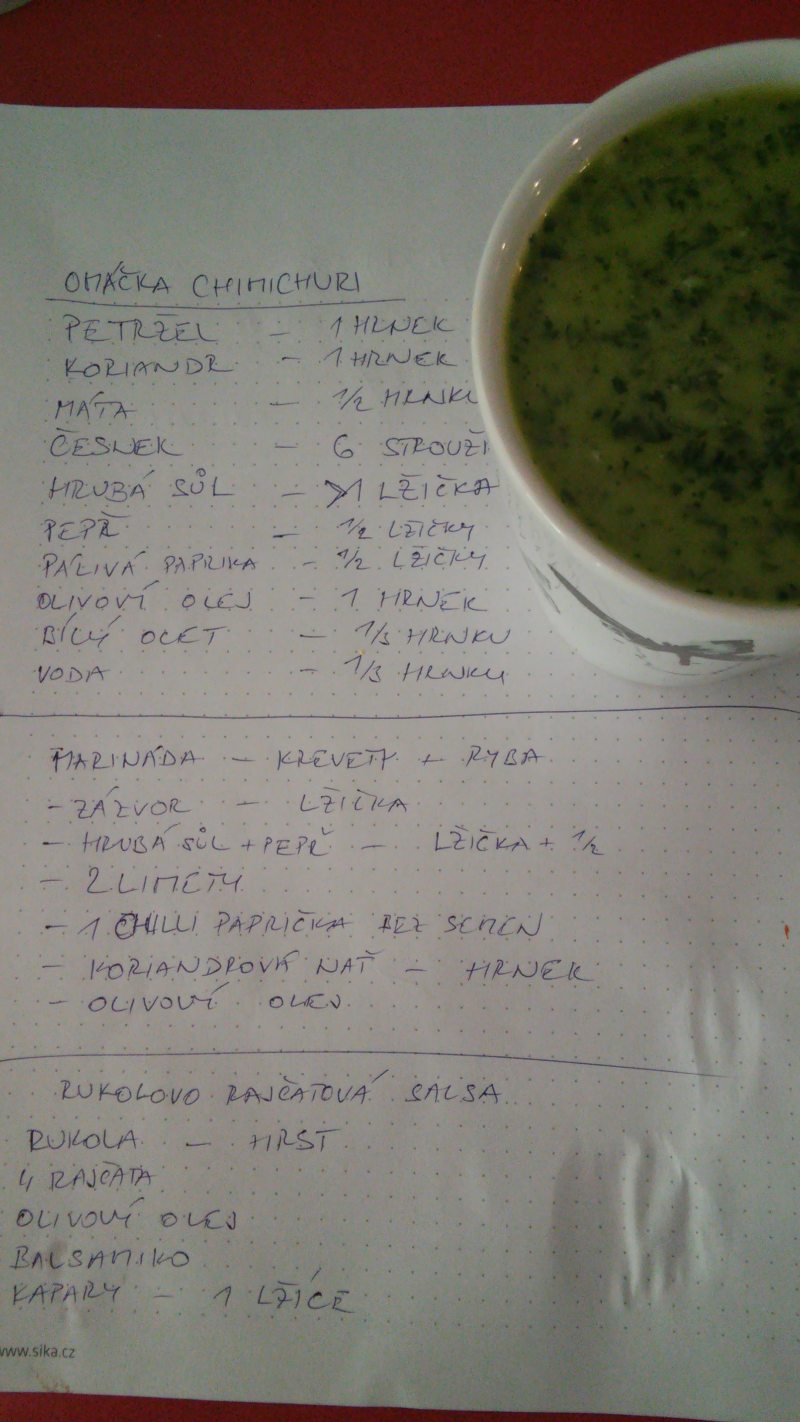 OMÁČKA CHIMICHURI
PETRŽEL - 1 HRNEK
KORIANDR - 1 HRNEK
MÁTA - 1/2 HRNKU
ČESNEK - 6 STROUŽI
HRUBÁ SŮL - 1 LŽIČKA
PEPŘ - 1/2 LŽIČKY
PÁLIVÁ PAPRIKA - 1/2 LŽIČKY
OLIVOVÍ OLEJ - 1 HRNEK
BÍLÝ OCET - 1/3 HRNKU
VODA - 1/3 HRNKU
MARINÁDA - KREVETY + RYBA
- ZÁZVOR - LŽIČKA
- HRUBÁ SŮL + PEPŘ - LŽIČKA + 1/2
- 2 LIMETY
- 1 CHILLI PAPRIČKA BEZ SEMEN
- KORIANDROVÁ NAŤ - HRNEK
- OLIVOVÍ OLEJ
RUKOLOVO RAJČATOVÁ SALSA
RUKOLA - HRST
4 RAJČATA
OLIVOVÍ OLEJ
BALSAMIKO
KAPARY - 1 LŽÍCE
www.sika.cz